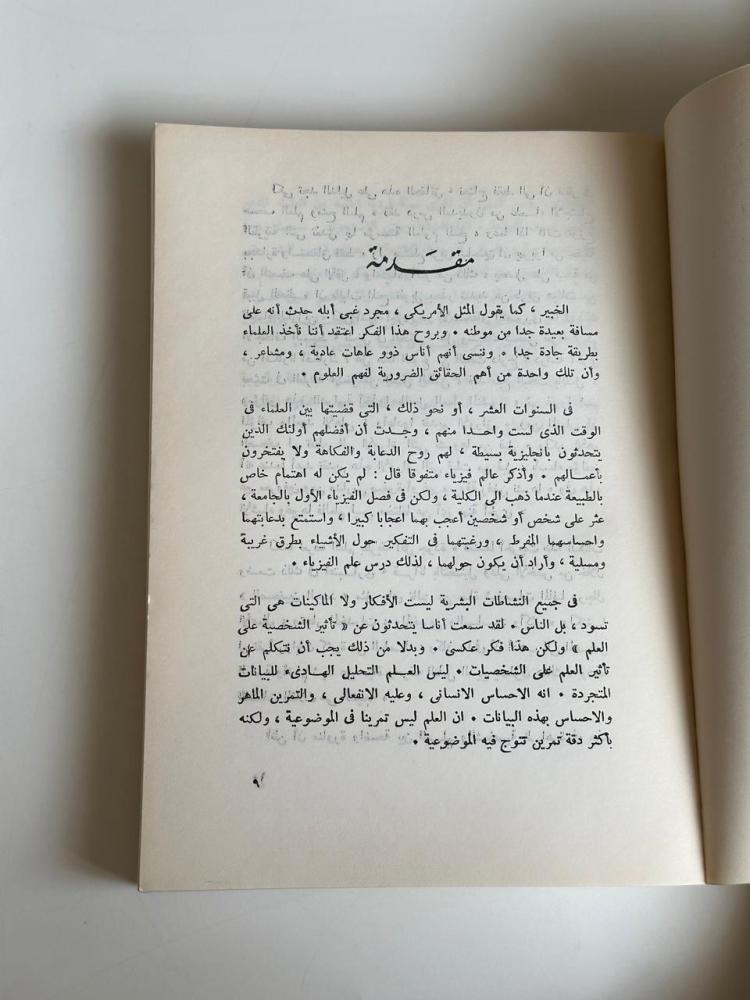 مقدمة
الخبير ، كما يقول المثل الأمريكى ، مجرد غبى أبله حدث أنه على
مسافة بعيدة جدا من موطنه • وبروح هذا الفكر اعتقد أننا نأخذ العلماء
بطريقة جادة جدا • وننسى أنهم أناس ذوو عاهات عادية ، ومشاعر ،
وأن تلك واحدة من أهم الحقائق الضرورية لفهم العلوم •
فى السنوات العشر ، أو نحو ذلك ، التى قضيتها بين العلماء فى
الوقت الذى لست واحدا منهم ، وجدت أن أفضلهم أولئك الذين
يتحدثون بانجليزية بسيطة ، لهم روح الدعابة والفكاهة ولا يفتخرون
بأعمالهم • وأذكر عالم فيزياء متفوقا قال : لم يكن له اهتمام خاص
بالطبيعة عندما ذهب الى الكلية ، ولكن فى فصل الفيزياء الأول بالجامعة ،
عثر على شخص أو شخصين أعجب بهما اعجابا كبيرا ، واستمتع بدعابتهما
واحساسهما المفرط ، ورغبتهما فى التفكير حول الأشياء بطرق غريبة
ومسلية ، وأراد أن يكون حولهما ، لذلك درس علم الفيزياء •
فى جميع النشاطات البشرية ليست الأفكار ولا الماكينات هى التى
تسود ، بل الناس • لقد سمعت أناسا يتحدثون عن « تأثير الشخصية على
العلم » ولكن هذا فكر عكسى • وبدلا من ذلك يجب أن نتكلم عن
تأثير العلم على الشخصيات • ليس العلم التحليل الهادىء للبيانات
المتجردة • انه الاحساس الانسانى ، وعليه الانفعالى ، والتمرين الماهر
والاحساس بهذه البيانات • ان العلم ليس تمرينا فى الموضوعية ، ولكنه
بأكثر دقة تمرين تتوج فيه الموضوعية •
٩